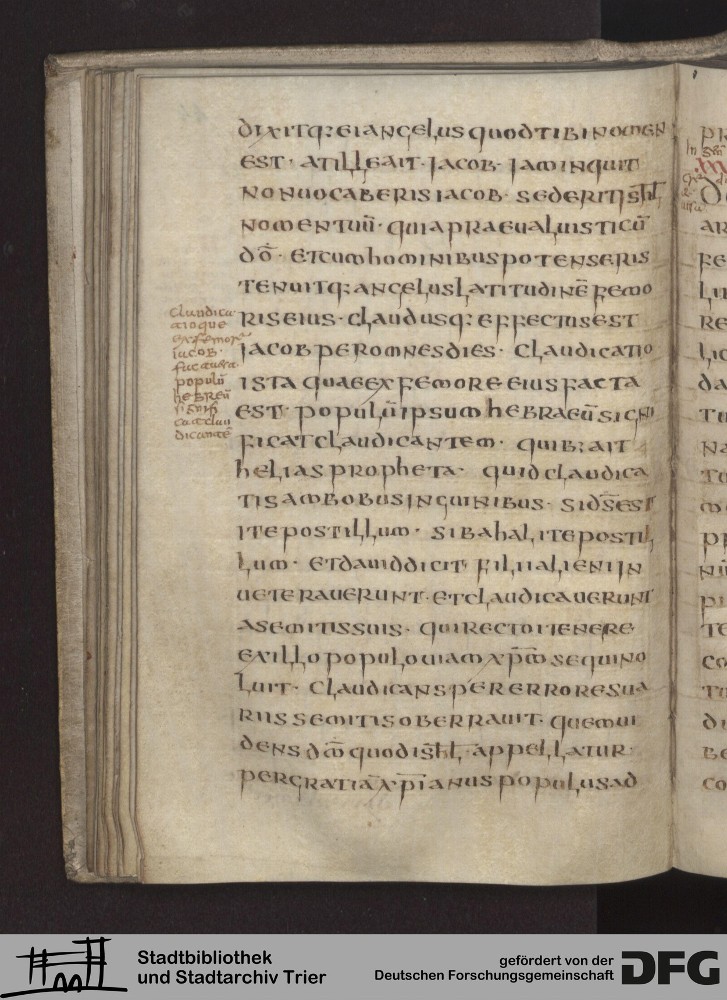 dixitq: eiangelusquodtibinomen
est· atilleait· iacob· iaminquit
nonuocaberisiacob· sederitisrhl
nomentuū· quiapraeualuisticū
dō· etcumhominibuspotenseris
tenuitq: angeluslatitudinēfemo
riseius· claudusq: effectusest
iacobperomnesdies· claudicatio
istaquaeexfemoreeiusfacta
est· populūipsumhebraeūsigni
ficatclaudicantem· quib: ait
heliaspropheta· quidclaudica
tisambobusinguinibus· sidsēst
itepostillum· sibahalitepostil
lum· etdauiddicit filiialieniin
ueterauerunt· etclaudicauerunt
asemitissuis· quirectoitenere
exillopopulouiamxp̄m̄sequino
luit· claudicanspererroresua
riissemitisoberrauit· quemui
densdm̄quodisrhl· appellatur·
pergratiāxp̄ianuspopulusad
claudica
tioque
ex femore
iacob·
facta era
populū
hebreū
signif
cat clau
dicantē
Stadtbibliothek
und Stadtarchiv Trier
gefördert von der
Deutschen Forschungsgemeinschaft
DFG